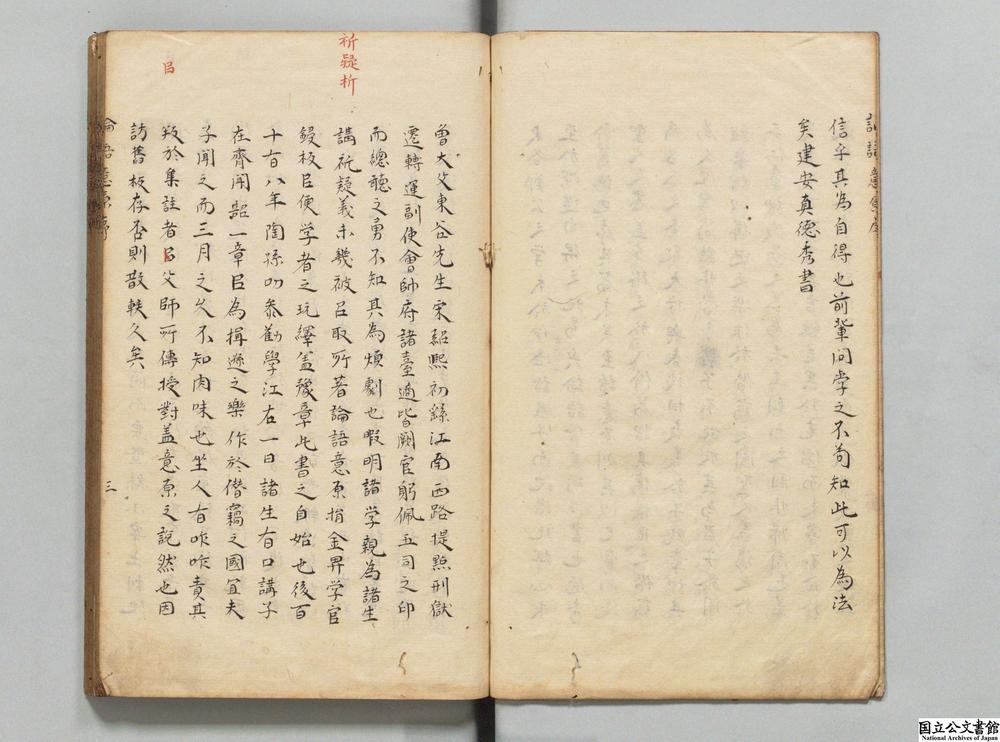 信乎其為自得也前輩问学之不苟知此可以為法
矣建安真德秀書
祈疑析
曾大父東谷先生宋紹熙初繇江南西路提點刑獄
遷轉運副使會帥府諸臺適皆闕官躬佩五司之印
而總聽之勇不知其為煩劇也暇明諸学親為諸生
講祈疑義未幾被召取所著論語意原捐金畀学官
鋟板臣使学者之玩繹盖豫章此書之自始也後百
十有八年陶孫叨忝勸學江右一日諸生有口講子
在齊聞韶一章臣為揖遜之樂作於僭竊之國宜夫
子聞之而三月之久不知肉味也坐人有咋咋責其
叛於集註者臣父師所傳授對盖意原之說然也因
㠯
訪舊板存否則散軼久矣
論語意原序
三
国立公文書館
National Archives of Japan